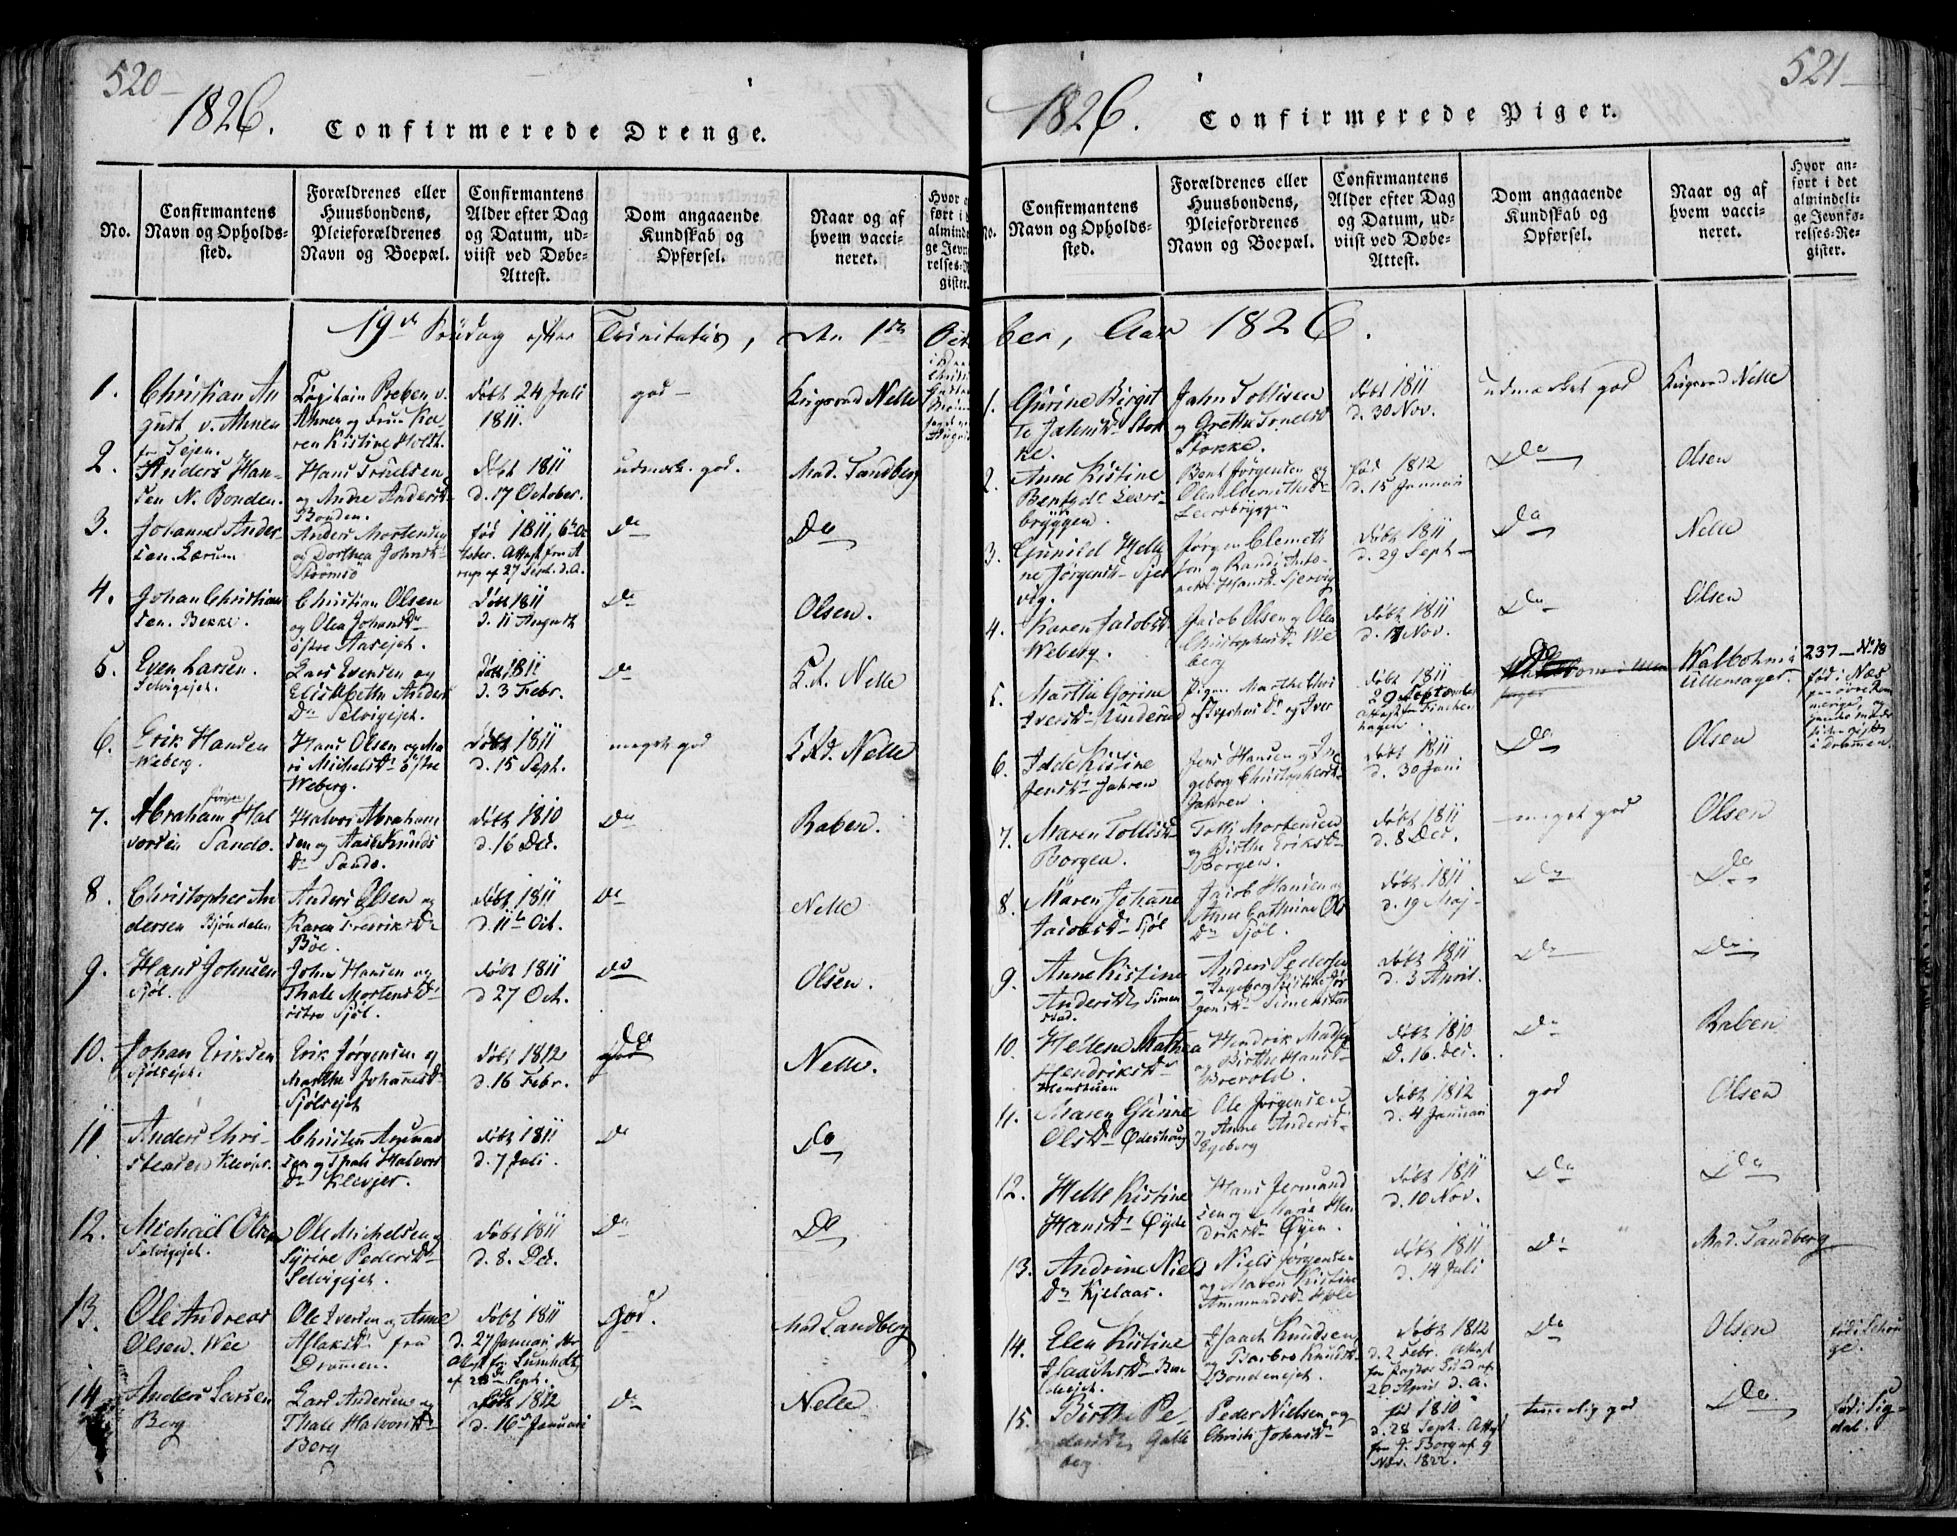 520
1826.
Confirmerede Drenge.
No.
Confirmantens Navn og Opholds-sted.
Forældrenes eller Huusbondens, Pleieforældrenes Navn og Boepæl.
Confirmantens Alder efter Dag og Datum, ud-viist ved Døbe-Attest.
Dom angaaende Kundskab og Opførsel.
Naar og af hvem vacci-neret.
19de Søndag efter Trinitatis, den 1ste Octo
1. Christian August v. Ahnen
Capitain Preben v. Ahnen og Frue Karen Kistine Holtt.
døbt 24 Juli 1811.
god
Krigsraad Nelle
2. Anders Hansen N. Bonden.
Hans Truelsen og Andre Andersd. Bonden.
døbt 1811 d. 17 October.
udmærk. god.
Mad. Sandberg
3. Johannes Andersen. Lærum
Anders Mortensen og Dorthea Johnsd. Strömsö
fød 1811, 6te Oc tober. Attest fra af 27 Sept. d. A.
Do
Do
4. Johan Christiansen. Bekke.
Christian Olsen og Olea Johansd. østre Aasejet.
døbt 1811 d. 11 August
Do
Olsen.
5. Even Larsen. Selvigejet.
Lars Evensen og Elisabeth Anders Dr Selvigejet.
døbt 1811 d. 3 Febr.
Do
Nelle
6. Erik Hansen Weberg.
Hans Olsen og Mari Michelsdr østre Weberg.
døbt 1811 d. 15 Sept.
meget god
Nelle
7. Abraham Halvorsen Sando.
Halvor Abrahamsen og Aase Knuds Dr Sando.
døbt 1810 d. 16 Dec.
Do
Raben.
8. Christopher Andersen Bjöndalen
Anders Olsen og Karen Fredriksdr Böe.
døbt 1811 d. 11te Oct.
Do
Nelle
9. Hans Johnsen Sjöl.
John Hansen og Thale Mortensdr østre Sjöl.
døbt 1811 d 27 Oct.
Do
Olsen.
10. Johan Eriksen Sjölsejet.
Erik Jørgensen og Marthe Johannesdr Sjölsejet
døbt 1812 d. 16 Febr.
Do
Nelle.
11. Anders Christensen Klevjer.
Christen Amundsen og Thale Halvors Dr Klevjer.
døbt 1811 d. 7 Juli.
Do
Do
12. Michael Olsen Selvigejet.
Ole Michelsen og Syrine Pedersdr Selvigejet.
døbt 1811 d. 8. Dec.
Do
Do
13. Ole Andreas Olsen. Wee
Ole Iversen og Anne Aslaksd. fra Drammen.
døbt 1811 d. 27 Januari
god.
Mad Sandberg
14. Anders Larsen Berg
Lars Andersen og Thale Halvorsdr Berg
døbt 1812 d. 16de Januari
Do
Nelle
521
1826.
Confirmerede Piger.
No.
Confirmantens Navn og Opholds-sted.
Forældrenes eller Huusbondens, Pleiefordrenes Navn og Boepæl.
Confirmantens Alder efter Dag og Datum, ud-viist ved Døbe-Attest.
Dom angaaende Kundskab og Opførsel.
Naar og af hvem vacci-neret.
Hvor an-ført i det almindeli-ge Jevnfø-relses-Re-gister.
ber, Aar 1826.
1. Gurine Birgitte Jahnsd. Stokke.
Jahn Tollisen og Grethe Stokke.
døbt 1811 d. 30 Nov.
udmærket god
Krigsraad Nelle
2. Anne Kistine Bentsdr Leersbryggen.
Bent Jørgensen og Leersbryggen
fød 1812 d. 15 Januari
Do
Olsen
3. Gunild Helene Jørgensd. Sjervig.
Jørgen Clemetsen og Randi Hansd. Sjervig
døbt 1811 d. 29 Sept
Do
Nelle
4. Karen Jacobsd Weberg.
Jacob Olsen og Olea Christophersdr Weberg
døbt 1811 d. 17 Nov.
Do
Olsen
5. Marthe Gorine Iversdr
Pigen Marthe og Iver
døbt 1811 29 September
Do
Ullensager.
237 No 18 fød i Næs
i Drammen.
6. Idde Kistine Jensdr Jahren
Jens Hansen og Ingeborg Christophersd. Jahren.
døbt 1811 d. 30 Juni
Do
Olsen
7. Maren Tollisdr Borgen.
Tolli Mortensen og Birthe Eriksdr Borgen.
døbt 1811 d. 8 Dec.
meget god
Olsen
8. Maren Johanne Jacobsdr Sjöl
Jacob Hansen og Anne Cathrine Ols Dr Sjöl.
døbt 1811 d. 19 Maj
Do
Do
9. Anne Kistine Andersdr Simenstad.
Anders Pedersen og Ingeborg Kistine Jørgensdr Simenstad
døbt 1811 d. 3 April.
Do
Do
10. Hellene Mathea Hendriksdr
Hendrik Madsen og Birthe Hansdr
døbt 1810 d. 16. Dec.
Do
Raben
11. Maren Gurine Olsdr Ödeshoug
Ole Jørgensen og Anne Anders Egeberg
døbt 1812 d. 4 Januari
god
Olsen
12. Helle Kistine Hansdr Öyde
Hans Jermundsen og Marie Hendriksdr Öyen.
døbt 1811 d. 10 Nov.
Do
Do
13. Andrine Niels Dr Kjelaas.
Niels Jørgensen og Maren Kistine Ammundsdr Hole
døbt 1811 d. 14 Juli
Do
Mad. Sandberg
14. Elen Kistine Isaachsdr Bondeneiet.
Isaach Knudsen og Barbro Knudsd. Bondenejet.
døbt 1812 d. 2 Febr. Attest fra Pastor Lund af 26 April d. A.
Do
Olsen
fød i Schouge.
15. Birthe Pedersdr Galleberg
Peder Nielsen og Christi Johnsdr
fød 1810 d. 28 Sept. Attest fra P. Borg af 9 Nov. 1822.
temmelig god
Do
fød i Sigdal.